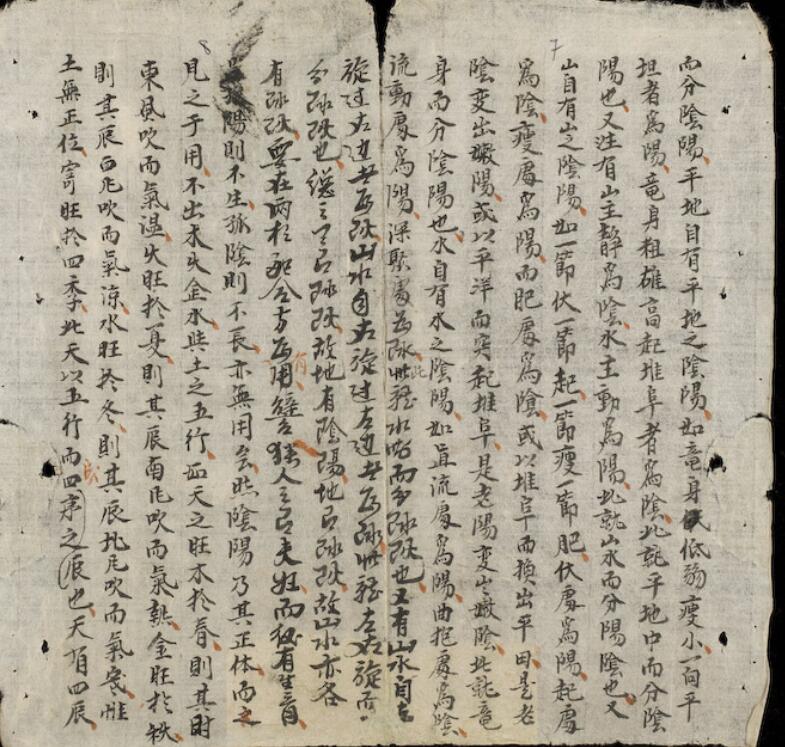 而分陰陽平地自有平地之陰陽如竜身低弱瘦小一向平
坦者爲陽竜身粗雄高起堆阜者爲陰此就平地中而分陰
陽也又注有山主靜爲陰水主動爲陽此就山水而分陽陰也又
山自有山之陰陽如一節伏一節起一節瘦一節肥伏處爲陽起處
爲陰瘦處爲陽而肥處爲陰或以堆阜而換出平田是老
陰变出嫰陽或以平洋而突起堆阜是老陽变出嫰陰此就竜
身而分陰陽也水自有水之陰陽如直流處爲陽曲抱處爲陰
流動處爲陽深聚處爲阴此水而分阴阳也又有山水自右
旋过左边者為阳山水自左旋过右边者為阴此左右旋而
分阴阳也總之天有阴阳故地有陰陽地有阴阳故山水亦各
有阴阳要在兩相配合方为用譬犹人之有夫妇而後有生育
陽則不生孤陰則不長亦無用会然陰陽乃其正体而之
見之于用不出木火金水與土之五行天之旺木於春則其时
東風吹而氣温火旺於夏則其辰南风吹而氣熱金旺於秋
則其辰西风吹而氣凉水旺於冬則其辰北风吹而氣寒惟
土無正位寄旺於四季此天以五行而四序之辰也天有四辰
8
7